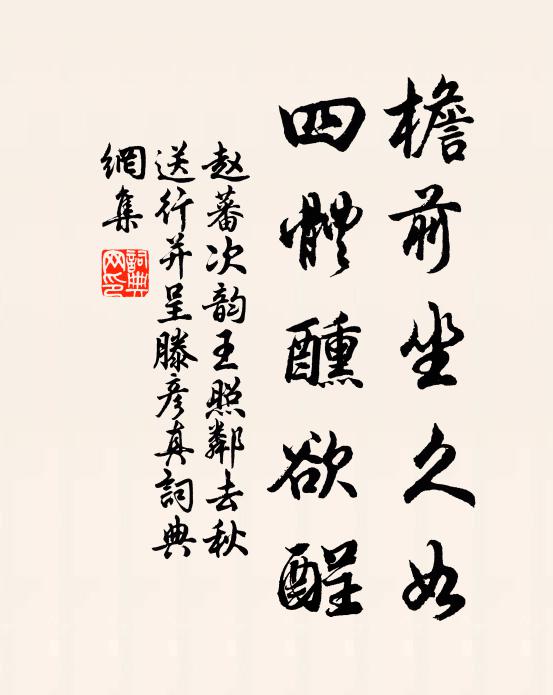 檐前坐久如
四體醺欲醒
赵蕃次韵王照鄰去秋
送行并呈滕彦真詞典
網集
詞典
网印